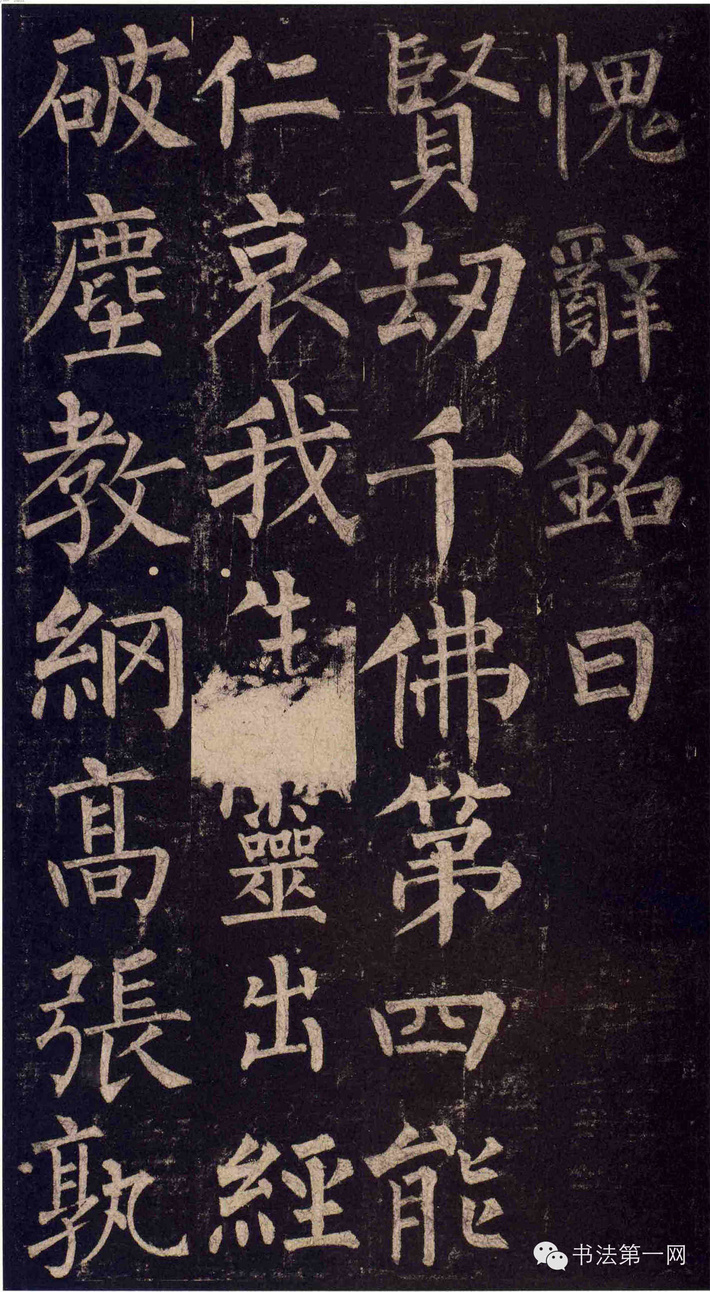 愧辭銘曰
賢劫千佛第四能
仁哀我生靈出經
破塵教綱高張孰
书法第一网